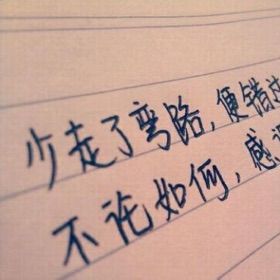 少走了弯路，便错
不论如何，感